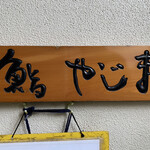 鮨 やじま